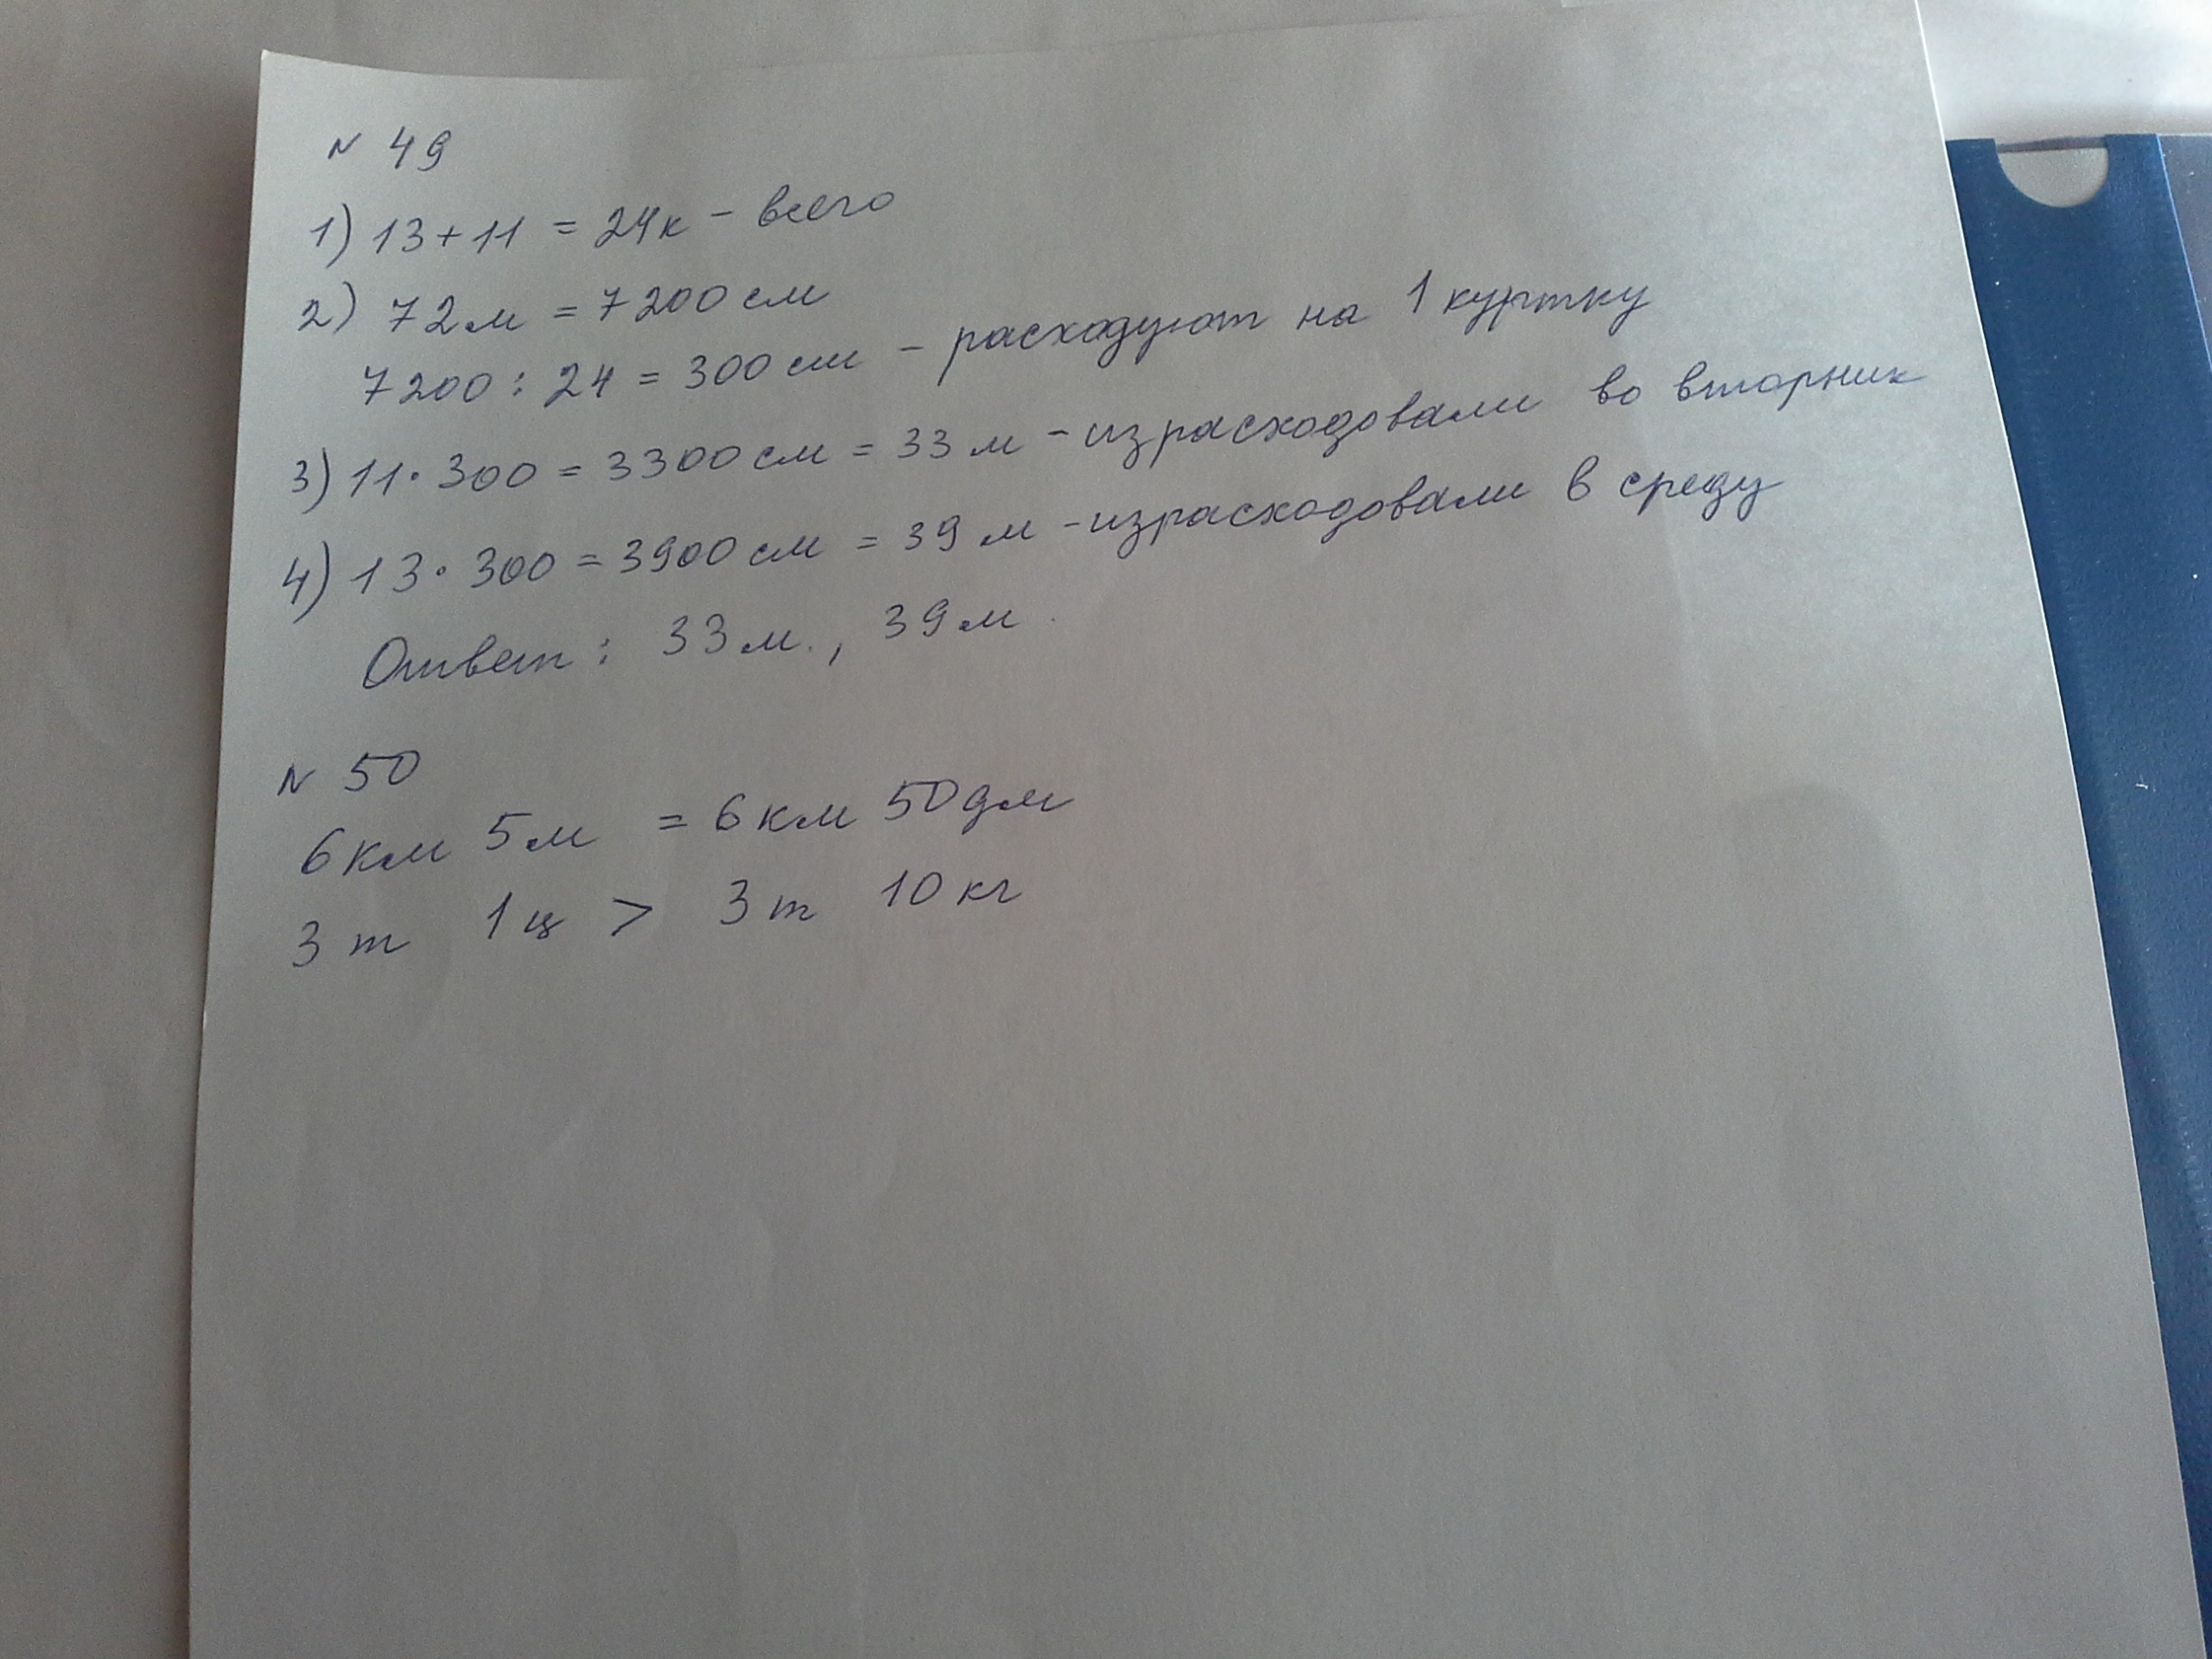 N 49
1) 13+11 = 24к - всего
2) 72м = 7200 см
7200 : 24 = 300 см - расходуют на 1 куртку
3) 11·300 = 3300 см = 33 м - израсходовали во вторник
4) 13·300 = 3900 см = 39 м - израсходовали в среду
Ответ: 33 м., 39 м.
N 50
6 км 5 м = 6 км 50 дм
3 т 1 ц > 3 т 10 кг